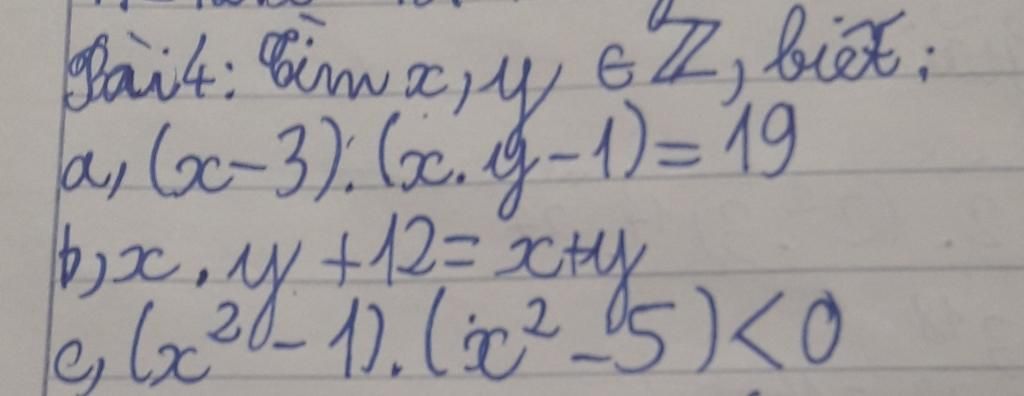 Bài 4: Tìm x, y ∈ Z, biết:
a, (x-3):(x.y-1)=19
b, x.y+12=x+y
c, (x²-1).(x²-5)<0